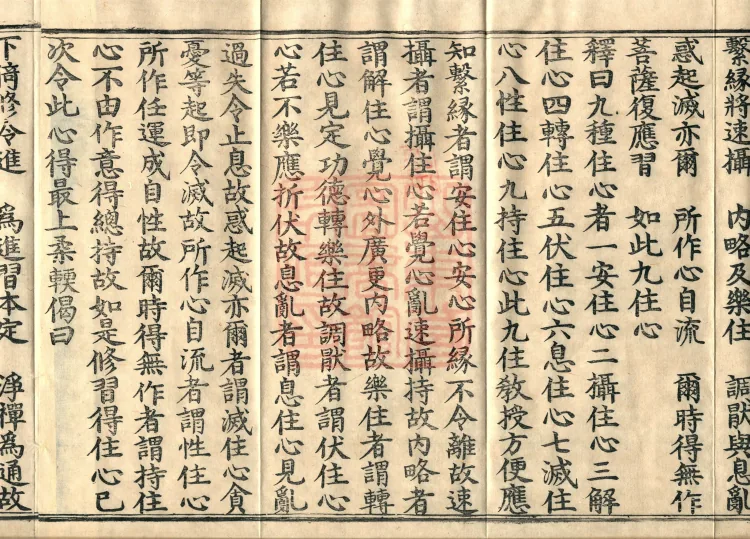 繫緣將速攝　內略及樂住　調猒與息亂
惑起滅亦爾　所作心自流　爾時得無作
菩薩復應習　如此九住心
釋曰九種住心者一安住心二攝住心三解
住心四轉住心五伏住心六息住心七滅住
心八性住心九持住心此九住教授方便應
知繫緣者謂安住心安心所緣不令離故速
攝者謂攝住心若覺心亂速攝持故內略者
謂解住心覺心外廣更內略故樂住者謂轉
住心見定功德轉樂住故調猒者謂伏住心
心若不樂應折伏故息亂者謂息住心見亂
過失令止息故惑起滅亦爾者謂滅住心貪
憂等起即令滅故所作心自流者謂性住心
所作任運成自性故爾時得無作者謂持住
心不由作意得總持故如是修習得住心已
次令此心得最上柔輭偈曰
下倚修令進　為進習本定　淨禪為通故